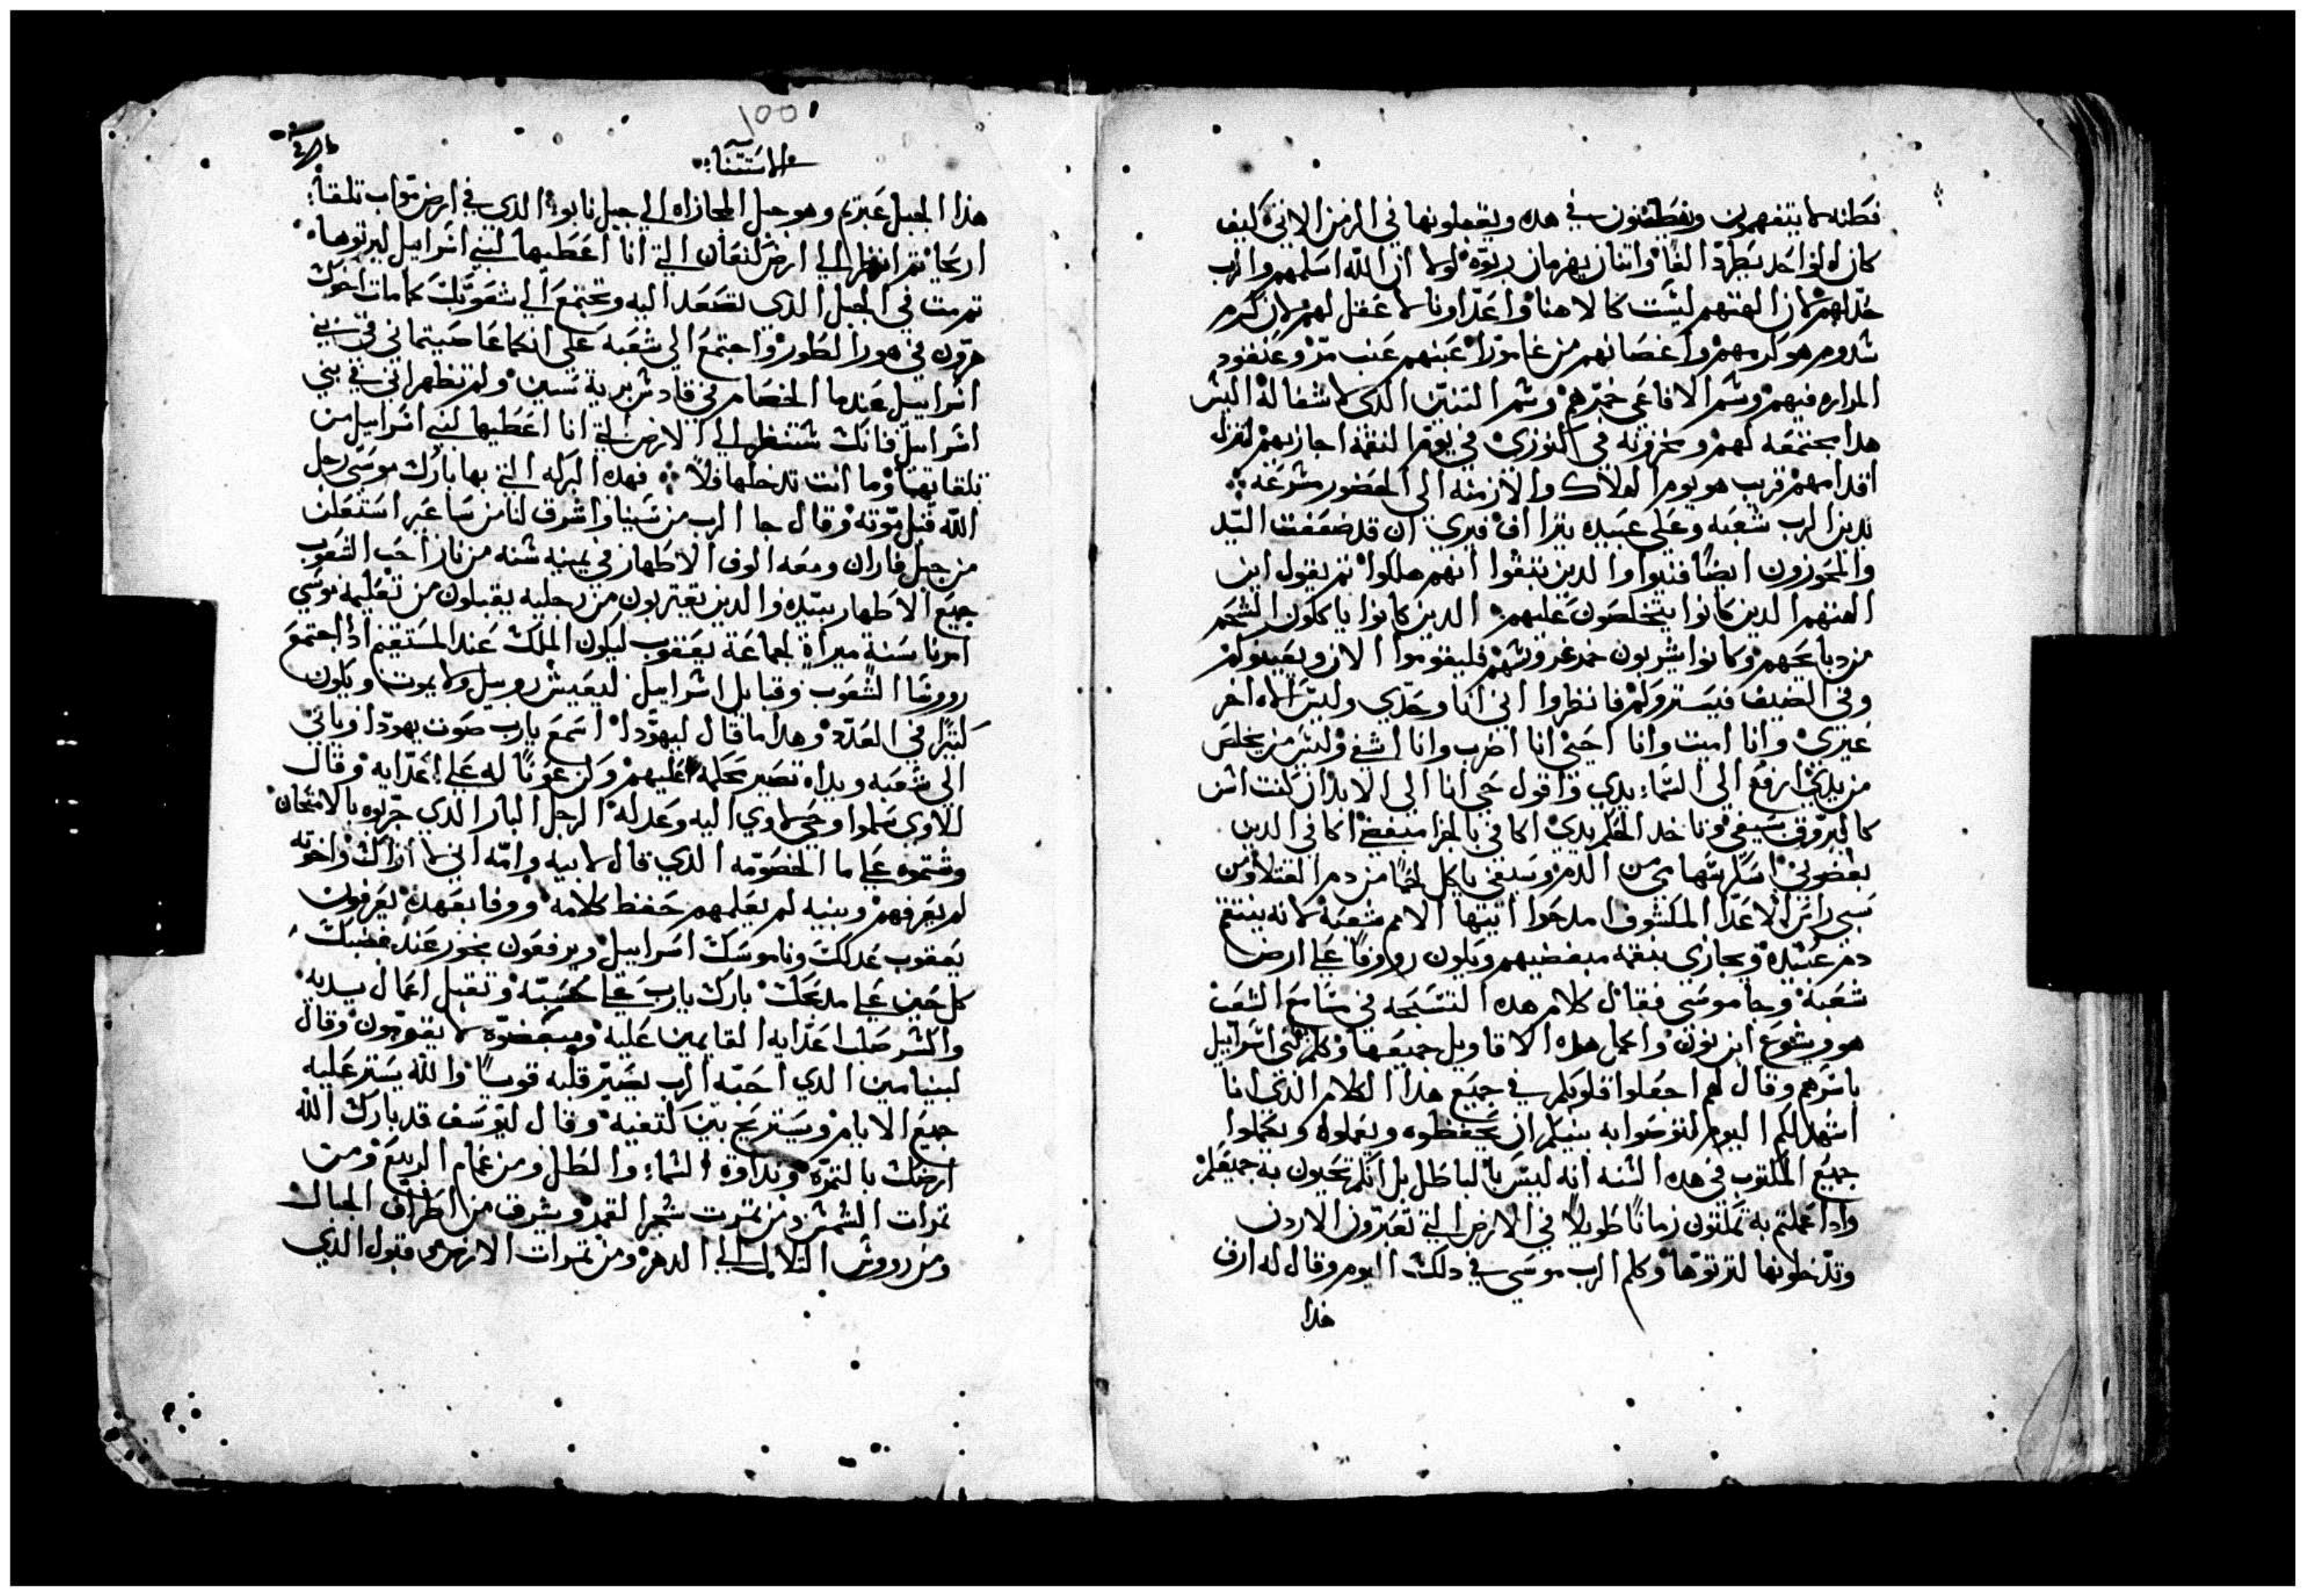 فطنه لا يتفهمون ويفطنون في هده ويقبلونها في الزمن الاتي كيف
كان الواحد يطرد الفاً واتنان يهزمان ربوه لولا ان الله اسلمهم والرب
خدلهم لان الهتهم ليست كالاهنا واعداونا لا عقل لهم لان كرم
سدوم هو كرمهم واغصانهم من غامورا عنبهم عنب مر وعنقود
المراره فيهم وسم الافاعي خمرهم وسم التنين الدي لا شفا له اليس
هدا مجتمعه لهم ومخزونه في كنوزي في يوم النقمه اجازيهم لتزل
اقدامهم قريب هو يوم الهلاك والازمنه الى الحضور مسرعه
يدين الرب شعبه وعلى عبيده يتراف فيري ان قد ضعفت اليد
والمحوزون ايضاً فنيوا والدين بنقوا انهم هلكوا تم يقول اين
الهتهم الدين كانوا يتخلصون عليهم الدين كانوا ياكلون الشحم
من دبايحهم وكانوا يشربون خمد غروسهم فليقوموا الان ويعينوكم
وفي الضيف فيستروكم فانظروا اني انا وحدي وليس الاه اخر
غيري وانا اميت وانا احيي انا اضرب وانا اشفي وليس من يخلص
من يدي ارفع الى السماء يدي واقول حي انا الى الابد ان كنت اسن
كالبروق سيفي وتاخد الحكم يدي اكافي بالجزا مبغضي اكافي الدين
بغضوني اسكر سهامي من الدم وسيفي ياكل لحماً من دم القتلا ومن
سبي راس الاعدا المكشوف امدحوا ايتها الامم شعبه لانه ينتقم
دم عبيده ويجازي بنقمه مبغضيهم ويكون رووفاً على ارض
شعبه وجا موسى فقال كلام هده التسبحه في مسامع الشعب
هو ويشوع ابن نون واكمل هده الاقاويل جميعها وكلم بني اسراييل
باسرهم وقال لهم اجعلوا قلوبكم في جميع هدا الكلام الدي انا
اشهد لكم اليوم لتوصوا به بنيكم ان يحفظوه ويعملوا ويكملوا
جميع المكتوب في هده السنه انه ليس بالباطل بل انكم تحيون به جميعكم
وادا عملتم به تمكتون زماناً طويلاً في الارض التي تعبرون الاردن
وتدخلونها لترتوها وكلم الرب موسى في دلك اليوم وقال له ارق
هدا
١٥٥
الاستتنا
هدا الجبل عبريم وهو جبل المجازاه الى جبل نابوا الدي في ارض مواب تلقا
اريحا تم انظر الى ارض كنعان التي انا اعطيها لبني اسراييل ليرتوها
تم مت في الجبل الدي تصعد اليه وتجتمع الى شعوبك كما مات اخوك
هرون في هور الطور واجتمع الى شعبه على انكما عاصيتماني في بني
اسراييل عند ما الخصام في قادش بريه سين ولم تظهراني في بني
اسراييل فانك ستنظر الى الارض التي انا اعطيها لبني اسراييل من
تلقايها وما انت تدخلها فلا فهده البركه التي بها بارك موسى رجل
الله قبل موته وقال جا الرب من سينا واشرق لنا من ساعير استعلن
من جبل فاران ومعه الوف الاطهار في يمينه سنه من نار احب الشعوب
جميع الاطهار بيده والدين يقتربون من رجليه يقبلون من تعليمه موسى
امرنا سنة ميراة لجماعة يعقوب ليكون الملك عند المستقيم ادا اجتمع
رووسا الشعوب وقبايل اسراييل ليعيش روبيل ولا يموت ويكون
كتيرا في العدد وهدا ما قال ليهودا اسمع يارب صوت يهودا وياتي
الى شعبه ويداه تصير محكمه عليهم وكن عوناً له على اعدايه وقال
للاوي سلموا وحي لاوي اليه وعدله الرجل البار الدي جربوه بالامتحان
وشتموه على ما الخصومه الدي قال لابيه وامه اني لا اراك واخوته
لم يعرفهم وبنيه لم يعلمهم حفظ كلامه ووفا بعهده يعرفون
يعقوب عدلك وناموسك اسراييل ويرفعون بخور عند غضبك
كل حين على مدبحك بارك يارب على محسبته وتقبل اعمال يديه
واكسر صلب اعدايه القايمين عليه ومبغضوه لا يقومون وقال
لبنيامين الدي احبه الرب يصير قلبه قوياً والله يستر عليه
جميع الايام ويستريح بين كتفيه وقال ليوسف قد بارك الله
ارضك بالتمره ونداوة السماء والطل ومن غمام الربيع ومن
تمرات الشمس ومن تمرت شهر القمر ويشرق من اطراف الجبال
ومن رووس التلال الى الدهر ومن تمرات الارض قبول الدي